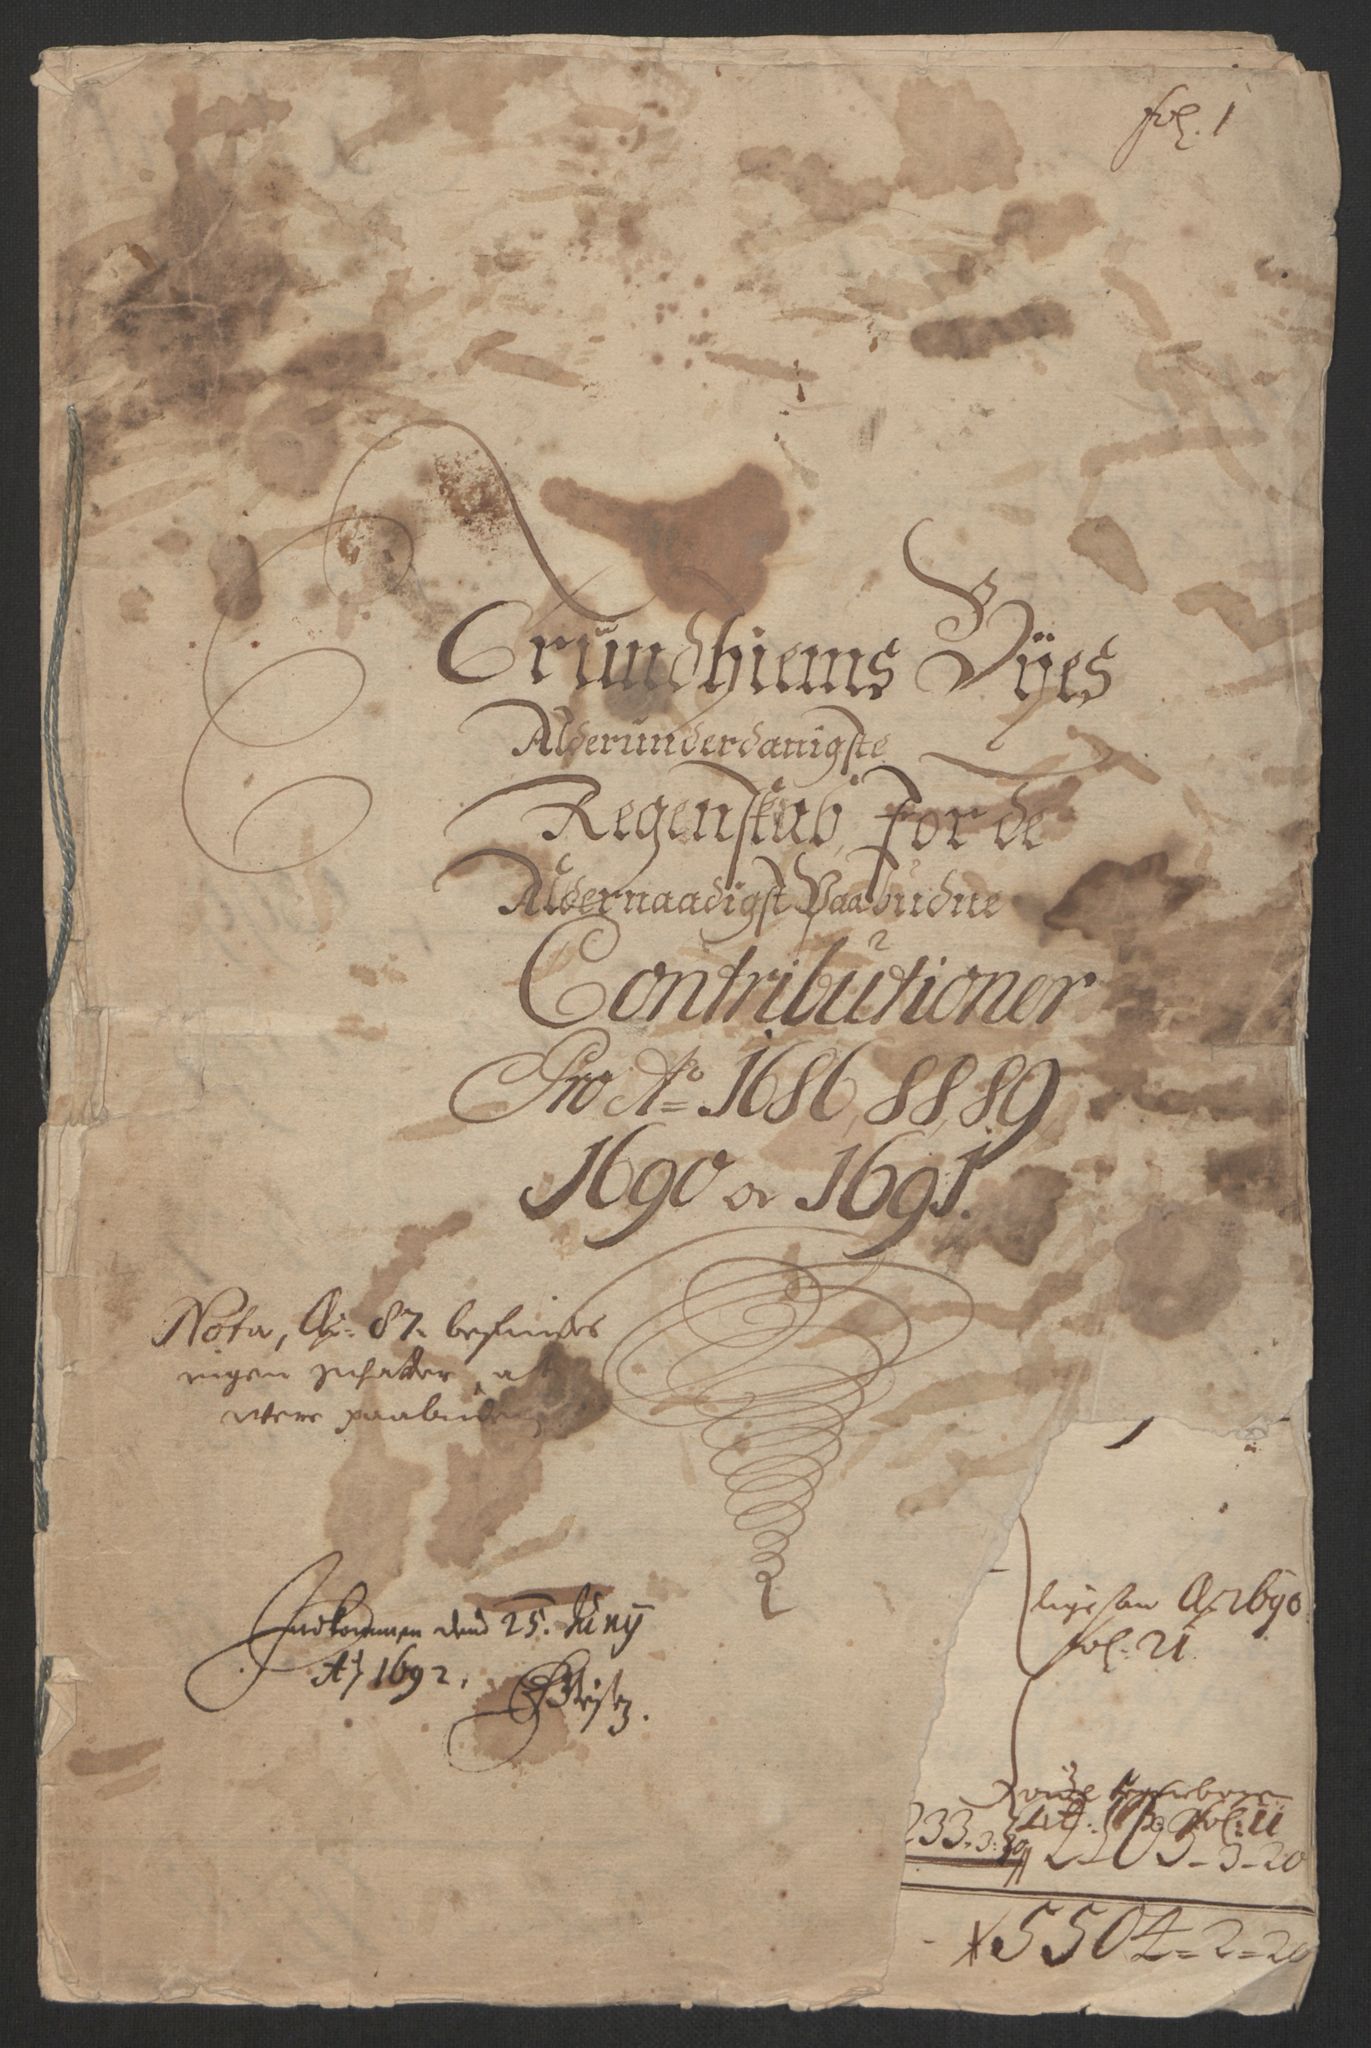 fol. 1
Trundhiems Byes
Alderunderdanigste
Regenskab, for de
Aldernaadigst Paabudne
Contributioner
Pro Ao 1686, 88, 89,
1690 oc 1691.
Nota, Ao 87. befindes
ingen schatter, at
were paabuden
Indkommen dend 25. Juny
Ao 1692.
ligesaa Ao 1690
fol. 21
fol: 11
233. 3:
5504=2=20